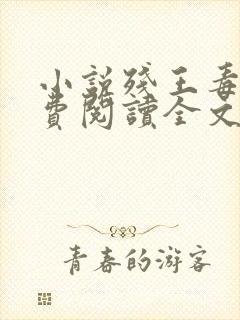 小說殘王毒
費閱讀全文
青春的游客